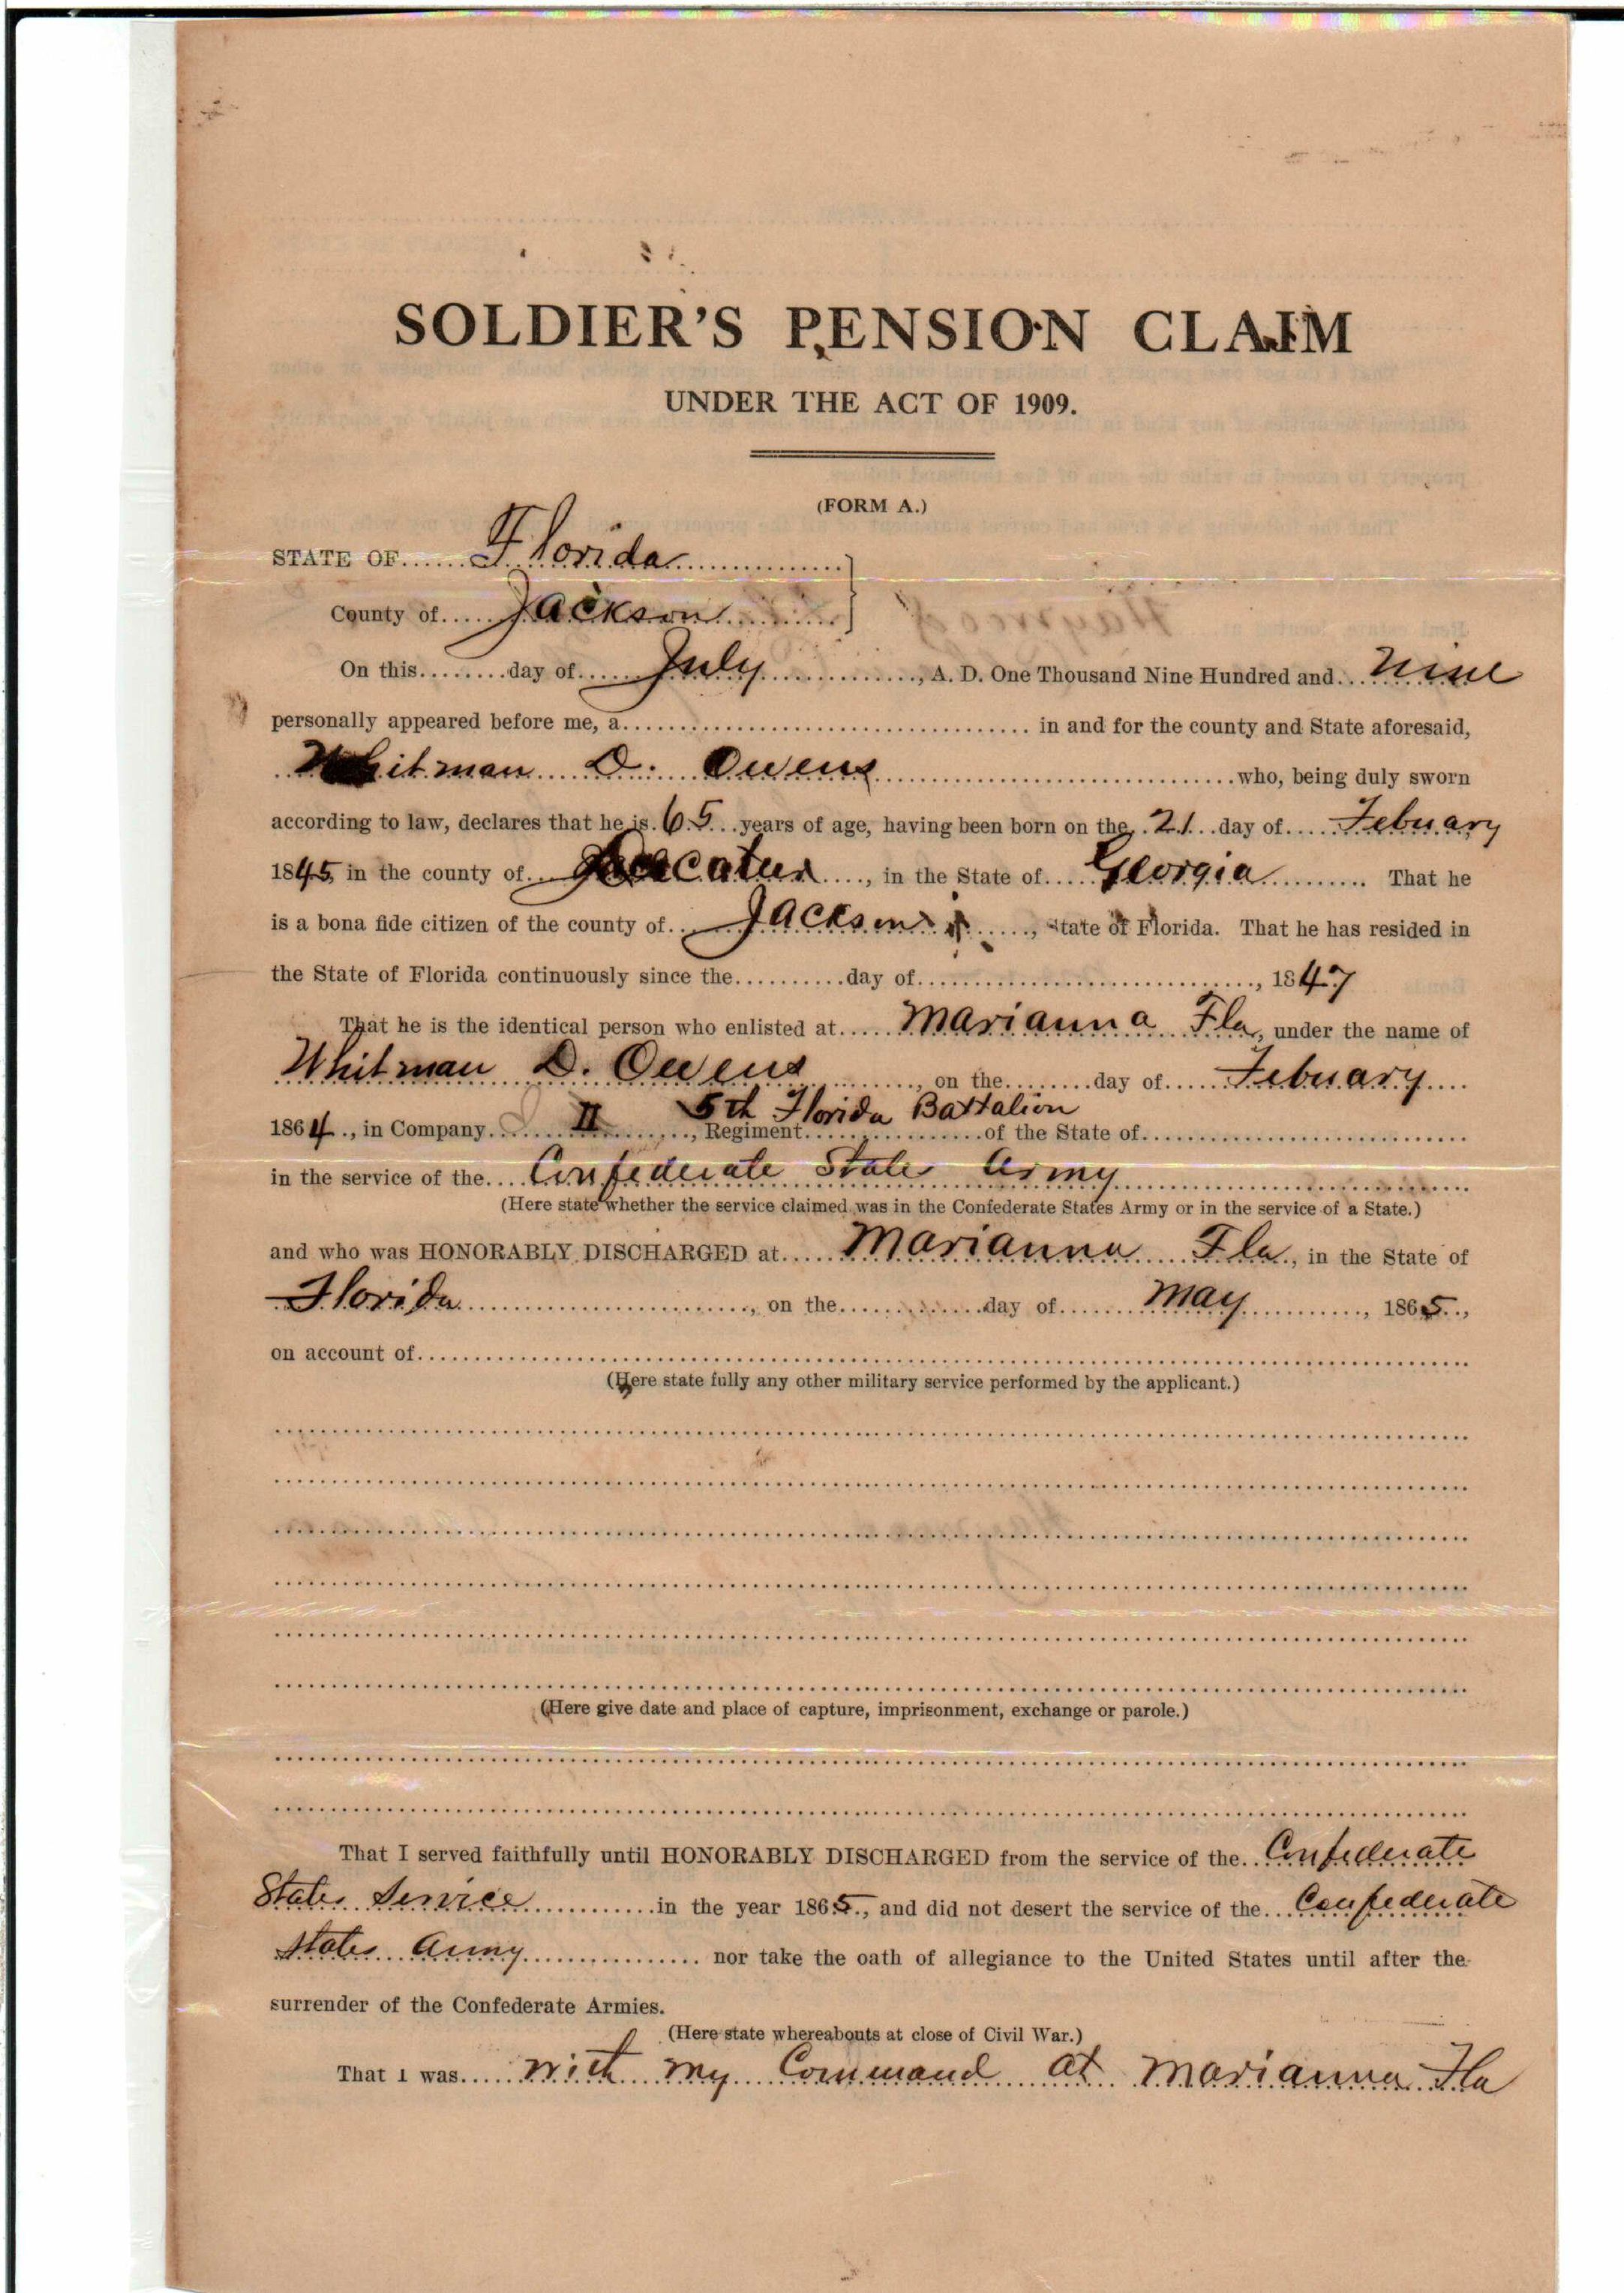 SOLDIER'S PENSION CLAIM
UNDER THE ACT OF 1909.
(FORM A.)
STATE OF......Florida
County of.....Jackson
On this........day of.....July..............., A. D. One Thousand Nine Hundred and...Nine
personally appeared before me, a.................................... in and for the county and State aforesaid,
Whitman D. Owens................................who, being duly sworn
according to law, declares that he is 65 years of age, having been born on the 21 day of.....Febuary
1845, in the county of...Decatur....., in the State of.....Georgia.......... That he
is a bona fide citizen of the county of...Jackson......, State of Florida. That he has resided in
the State of Florida continuously since the..........day of.............................., 1847
That he is the identical person who enlisted at.....Marianna Fla, under the name of
Whitman D. Owens.........., on the........day of.....Febuary....
1864., in Company....II......., Regiment 5th Florida Battalion of the State of.............................
in the service of the....Confederate State Army
(Here state whether the service claimed was in the Confederate States Army or in the service of a State.)
and who was HONORABLY DISCHARGED at.....Marianna Fla., in the State of
Florida.........................., on the.............day of.......May............, 1865..,
on account of
(Here state fully any other military service performed by the applicant.)
(Here give date and place of capture, imprisonment, exchange or parole.)
That I served faithfully until HONORABLY DISCHARGED from the service of the..Confederate
States Service............in the year 1865., and did not desert the service of the...Confederate
States Army................ nor take the oath of allegiance to the United States until after the
surrender of the Confederate Armies.
(Here state whereabouts at close of Civil War.)
That I was.....with my Command at Marianna Fla